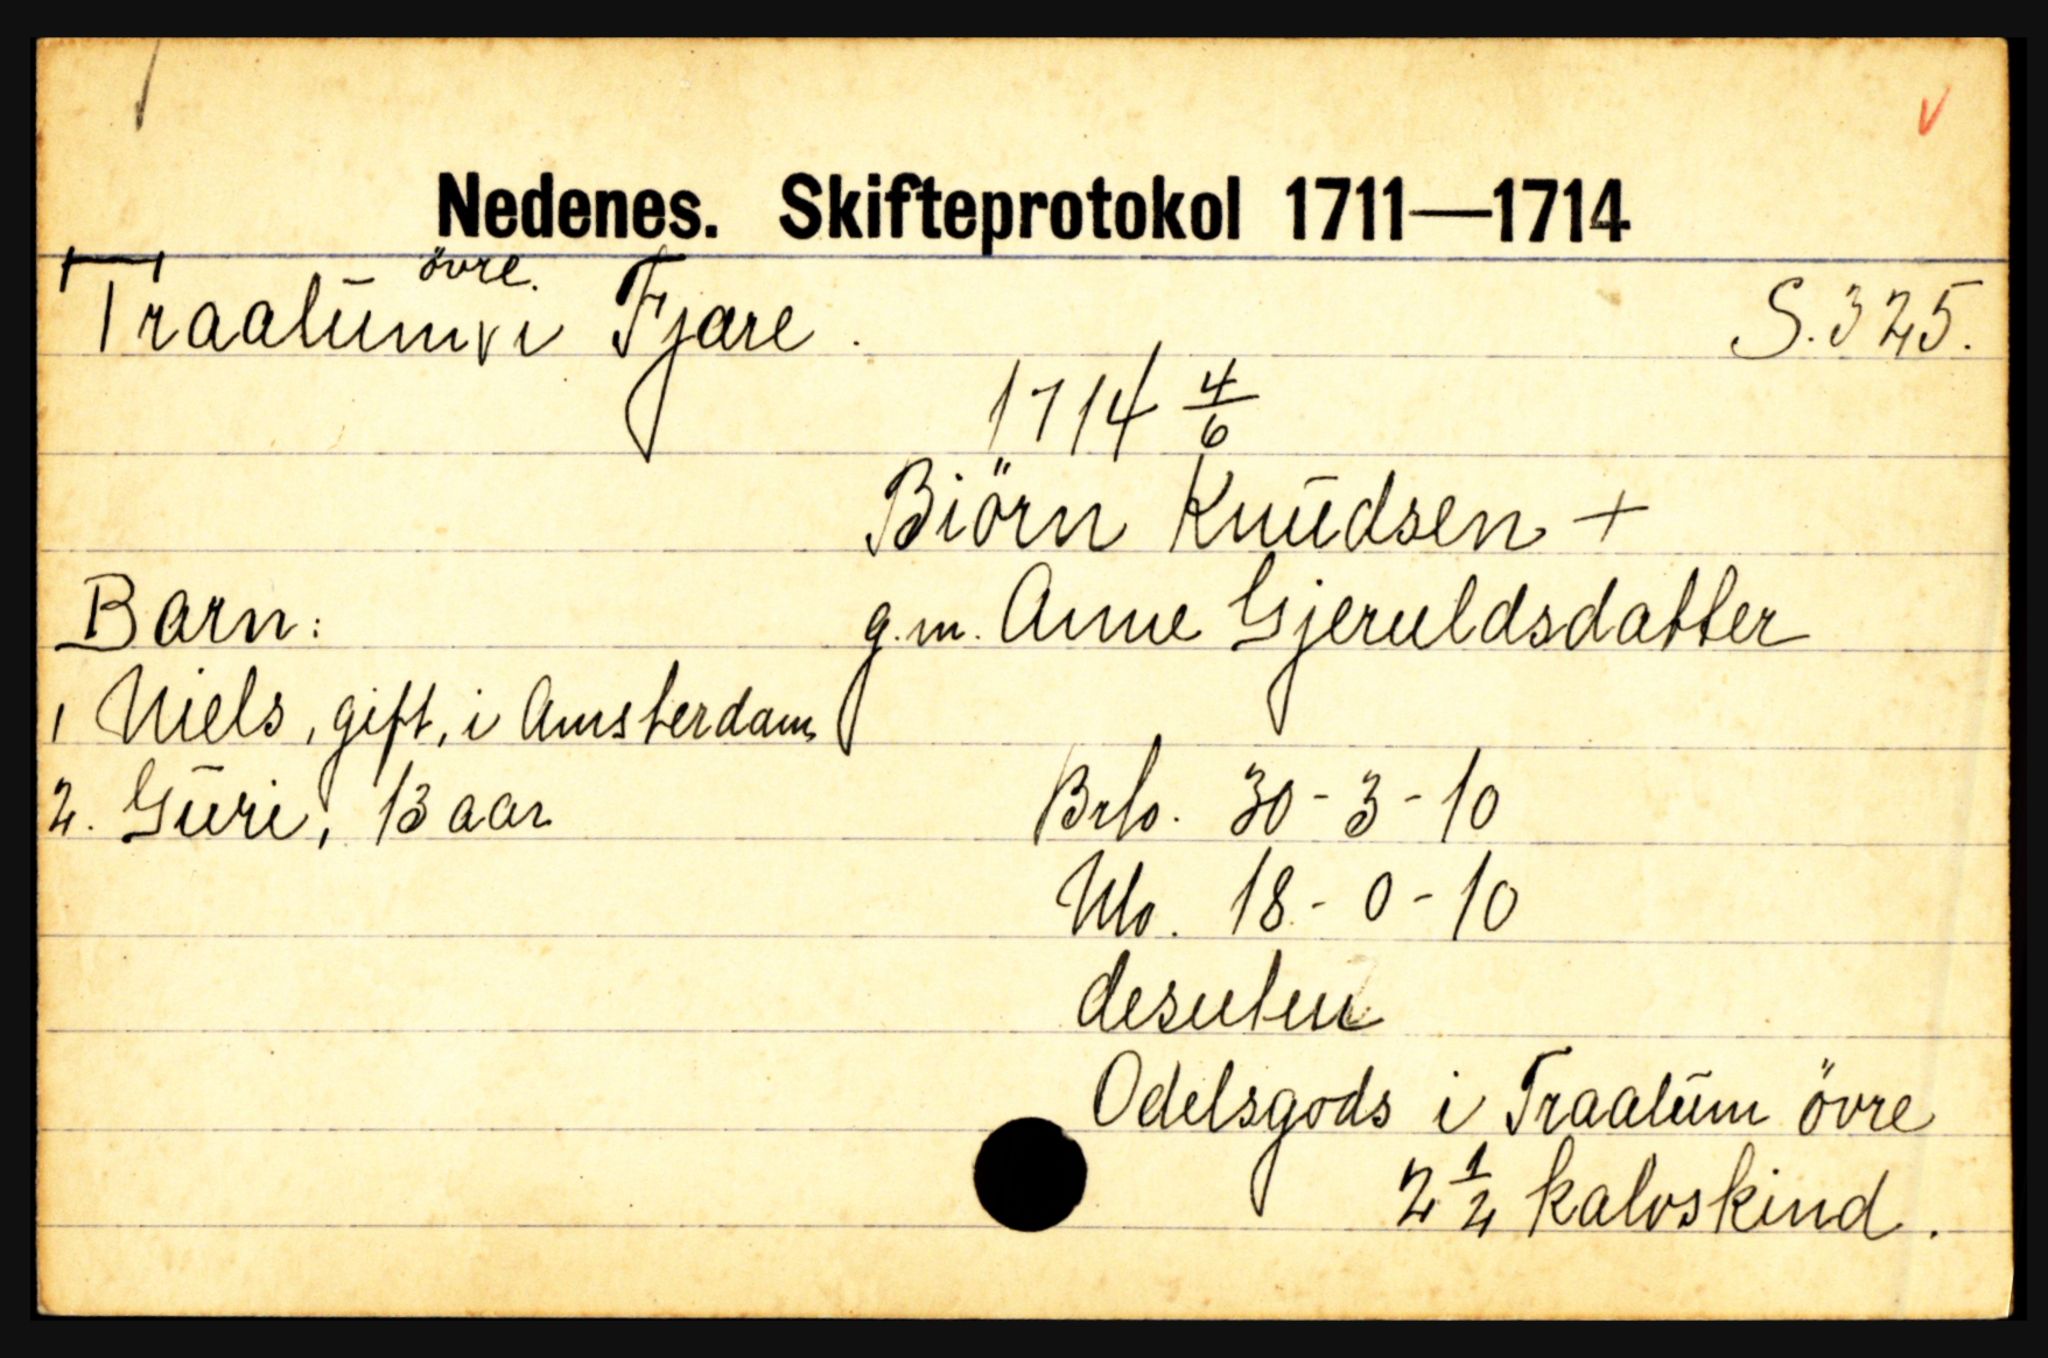 Nedenes. Skifteprotokol 1711—1714
övre.
Traalum i Fjære. S. 325.
1714 4/6
Biörn Knudsen +
Barn: g.m. Anne Gjeruldsdatter
1 Niels, gift, i Amsterdam
2. Guri, 13 aar
Brb. 30-3-10
Nb. 18-0-10
desuten
Odelsgods i Traalum övre
2 1/2 kalvskind.